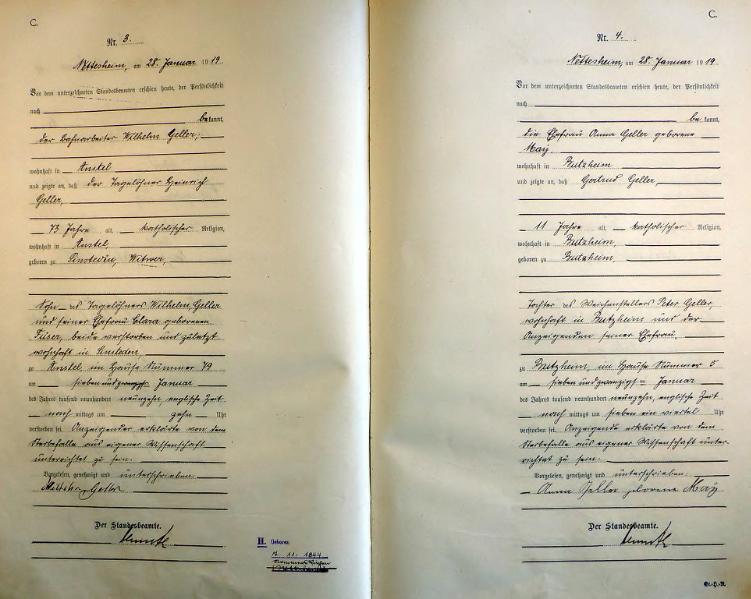 C.
Nr. 3.
Nettesheim, am 28. Januar 1919.
Vor dem unterzeichneten Standesbeamten erschien heute, der Persönlichkeit
nach
bekannt,
der Bahnarbeiter Wilhelm Geller,
wohnhaft in Anstel
und zeigte an, daß der Tagelöhner Heinrich
Geller,
73 Jahre alt, katholischer Religion,
wohnhaft in Anstel,
geboren zu Witwer,
Sohn des Tagelöhners Wilhelm Geller
und seiner Ehefrau Clara geborenen
beide verstorben und zuletzt
wohnhaft in
zu Anstel, im Hause Nummer 79
am siebenundzwanzigsten Januar
des Jahres tausend neunhundert neunzehn, englische Zeit
nachmittags um zehn Uhr
verstorben sei. Anzeigender erklärte von dem
Sterbefalle aus eigener Wissenschaft
unterrichtet zu sein.
Vorgelesen, genehmigt und unterschrieben.
Wilhelm Geller
Der Standesbeamte.
II. Geboren
11. 1844
C.
Nr. 4.
Nettesheim, am 28. Januar 1919.
Vor dem unterzeichneten Standesbeamten erschien heute, der Persönlichkeit
nach
bekannt,
die Ehefrau Anna Geller geborene
May
wohnhaft in Butzheim
und zeigte an, daß Gertrud Geller,
11 Jahre alt, katholischer Religion,
wohnhaft in Butzheim,
geboren zu Butzheim,
Tochter des Weichenstellers Peter Geller,
wohnhaft in Butzheim und der
Anzeigenden seiner Ehefrau,
zu Butzheim, im Hause Nummer 5
am siebenundzwanzigsten Januar
des Jahres tausend neunhundert neunzehn, englische Zeit
nachmittags um sieben ein viertel Uhr
verstorben sei. Anzeigende erklärte von dem
Sterbefalle aus eigener Wissenschaft unter-
richtet zu sein.
Vorgelesen, genehmigt und unterschrieben.
Anna Geller geborene May
Der Standesbeamte.